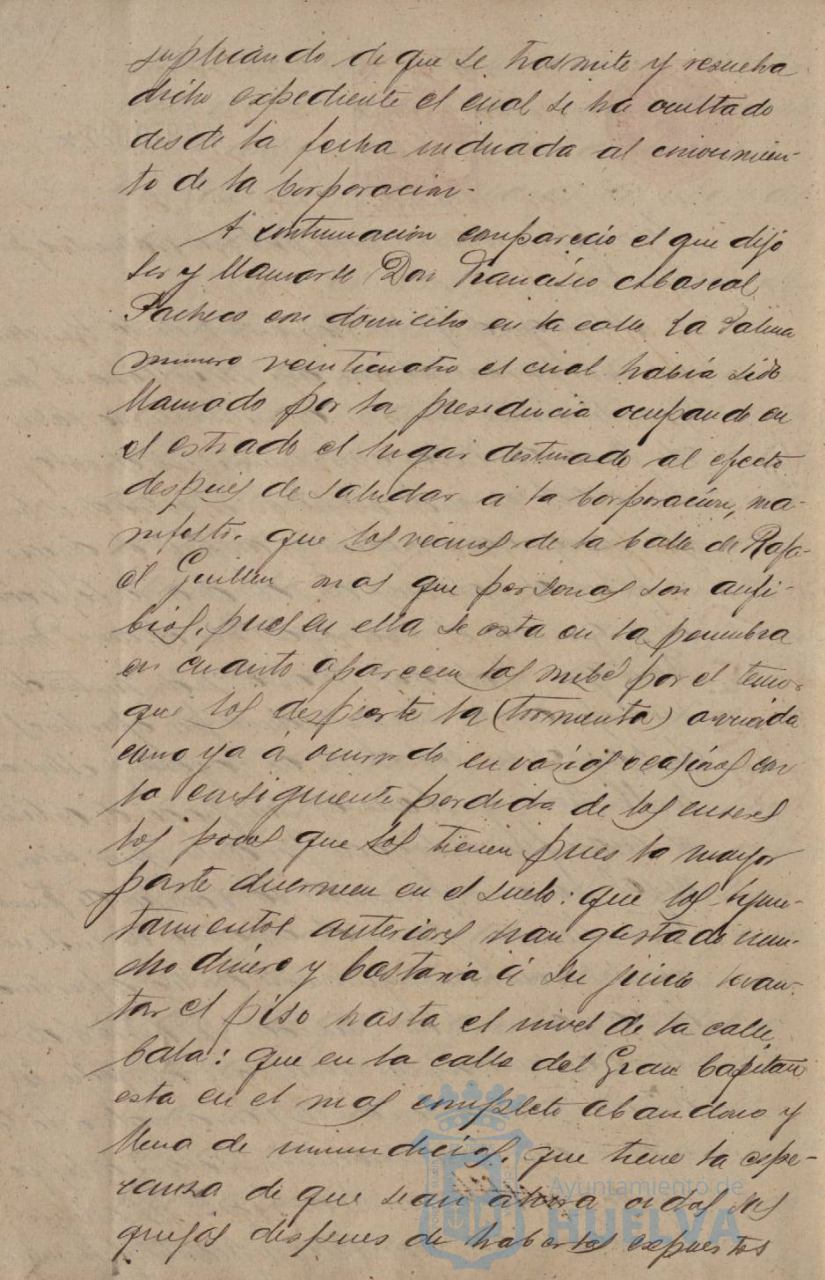 suplicando de que se trasmite y resuelva
dicho expediente el cual se ha ocultado
desde la fecha indicada al conocimien-
to de la Corporacion.
A continuacion comparecio el que dijo
ser y llamarse Don Francisco Abascal
Pacheco con domicilio en la calle La Palma
numero veinticuatro el cual habia sido
llamado por la presidencia ocupando en
el estrado el lugar destinado al efecto
despues de saludar a la Corporación, ma-
nifesto. que los vecinos de la Calle de Rafa-
el Guillen mas que personas son anfi-
bios, pues en ella se esta en la penumbra
en cuanto aparecen las nubes por el temor
que los despierte la (tormenta) avenida
como ya á ocurrido en varias ocasiones con
la consiguiente perdida de los enseres
los pocos que los tienen pues la mayor
parte duermen en el suelo: que los Ayun-
tamientos anteriores han gastado mu-
cho dinero y bastaria á su juicio levan-
tar el piso hasta el nivel de la calle
Cala: que en la calle del Gran Capitan
esta en el mas completo abandono y
llena de inmundicias, que tiene la espe-
ranza de que sean ahora oidas sus
quejas despues de haberlas expuestos
Ayuntamiento de
HUELVA